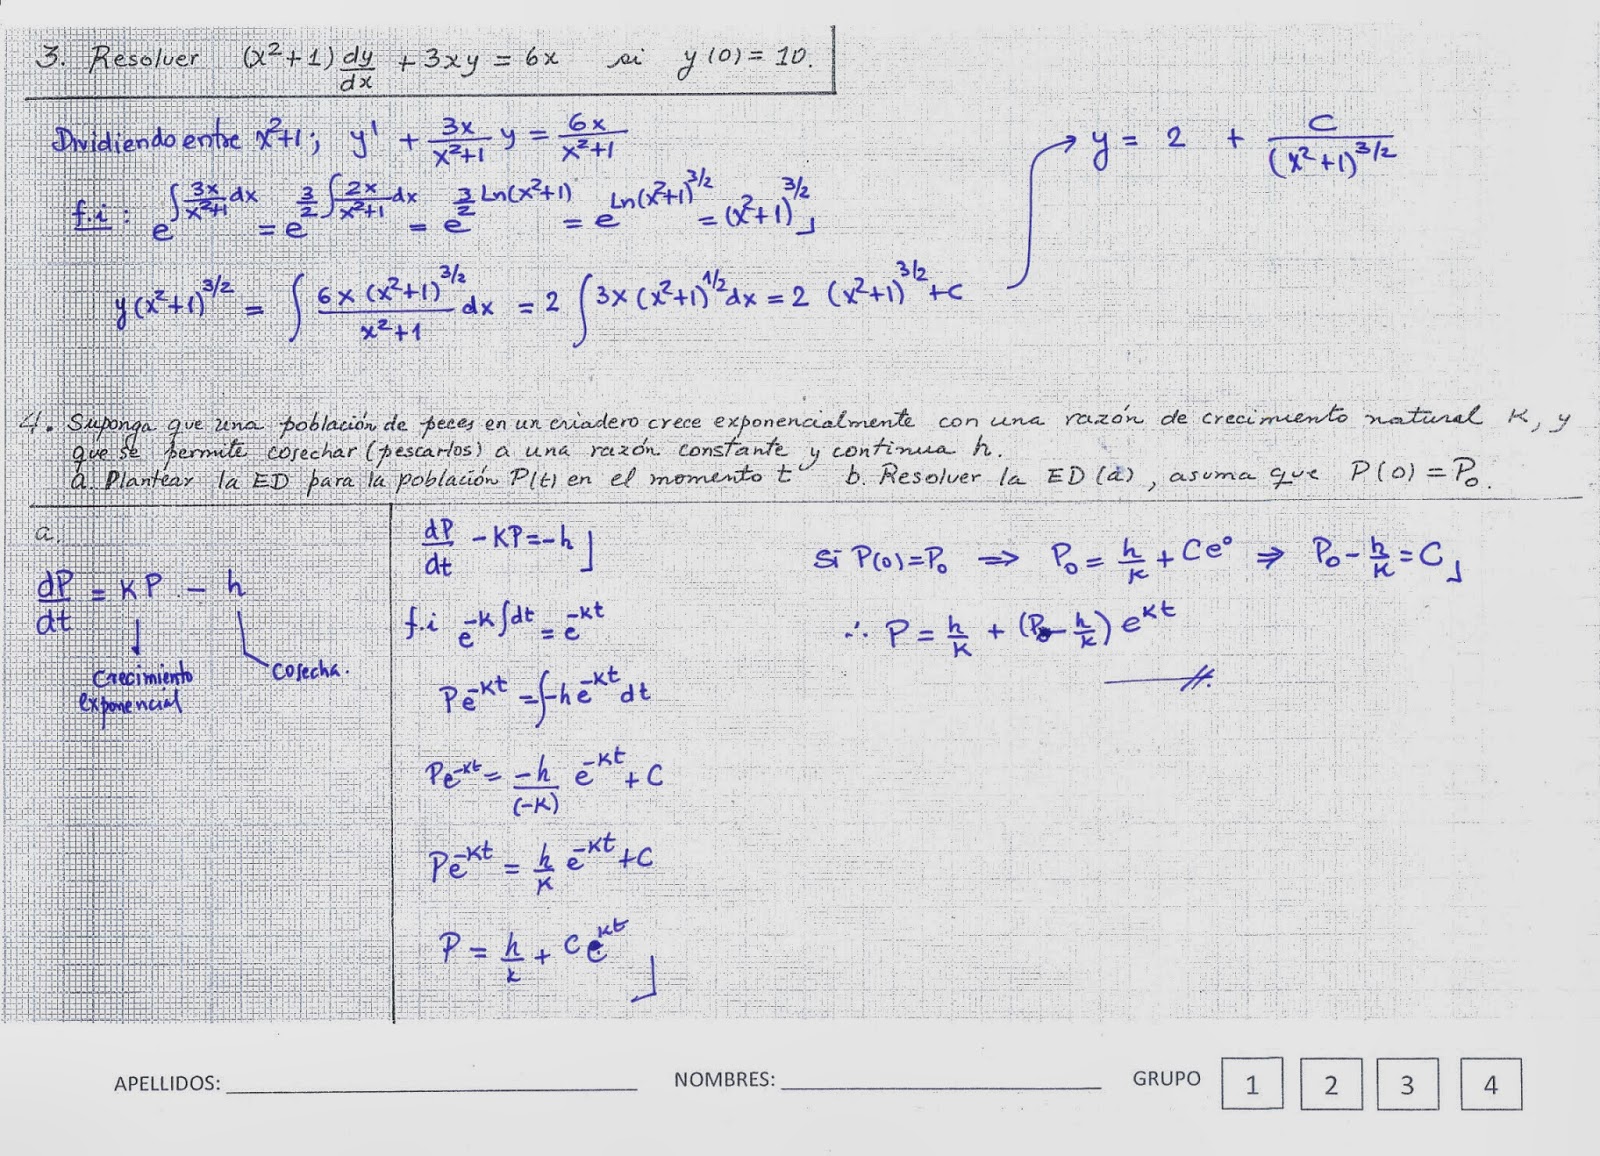 3. Resolver (x²+1) dy/dx + 3xy = 6x si y(0) = 10.
Dividiendo entre x²+1; y' + 3x/(x²+1) y = 6x/(x²+1)
f.i : e^(∫ 3x/(x²+1) dx) = e^(3/2 ∫ 2x/(x²+1) dx) = e^(3/2 Ln(x²+1)) = e^(Ln(x²+1)^(3/2)) = (x²+1)^(3/2)
y(x²+1)^(3/2) = ∫ 6x (x²+1)^(3/2)/(x²+1) dx = 2 ∫ 3x (x²+1)^(1/2) dx = 2 (x²+1)^(3/2) + C
→ y = 2 + C/(x²+1)^(3/2)
4. Suponga que una población de peces en un criadero crece exponencialmente con una razón de crecimiento natural K, y
que se permite cosechar (pescarlos) a una razón constante y continua h.
a. Plantear la ED para la población P(t) en el momento t b. Resolver la ED (a), asuma que P(0) = P₀.
a.
dP/dt = KP - h
Crecimiento
exponencial
cosecha.
dP/dt - KP = -h
f.i e^(-K∫dt) = e^(-Kt)
Pe^(-Kt) = ∫-he^(-Kt) dt
Pe^(-Kt) = -h/(-K) e^(-Kt) + C
Pe^(-Kt) = h/K e^(-Kt) + C
P = h/K + C e^(Kt)
Si P(0) = P₀ ⇒ P₀ = h/K + Ce⁰ ⇒ P₀ - h/K = C
∴ P = h/K + (P₀ - h/K) e^(Kt)
APELLIDOS: NOMBRES: GRUPO 1 2 3 4